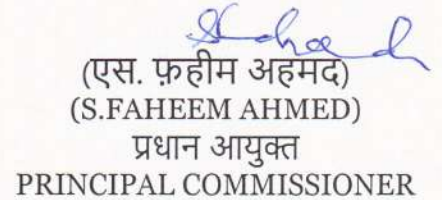 (एस. फ़हीम अहमद)
(S.FAHEEM AHMED)
प्रधान आयुक्त
PRINCIPAL COMMISSIONER